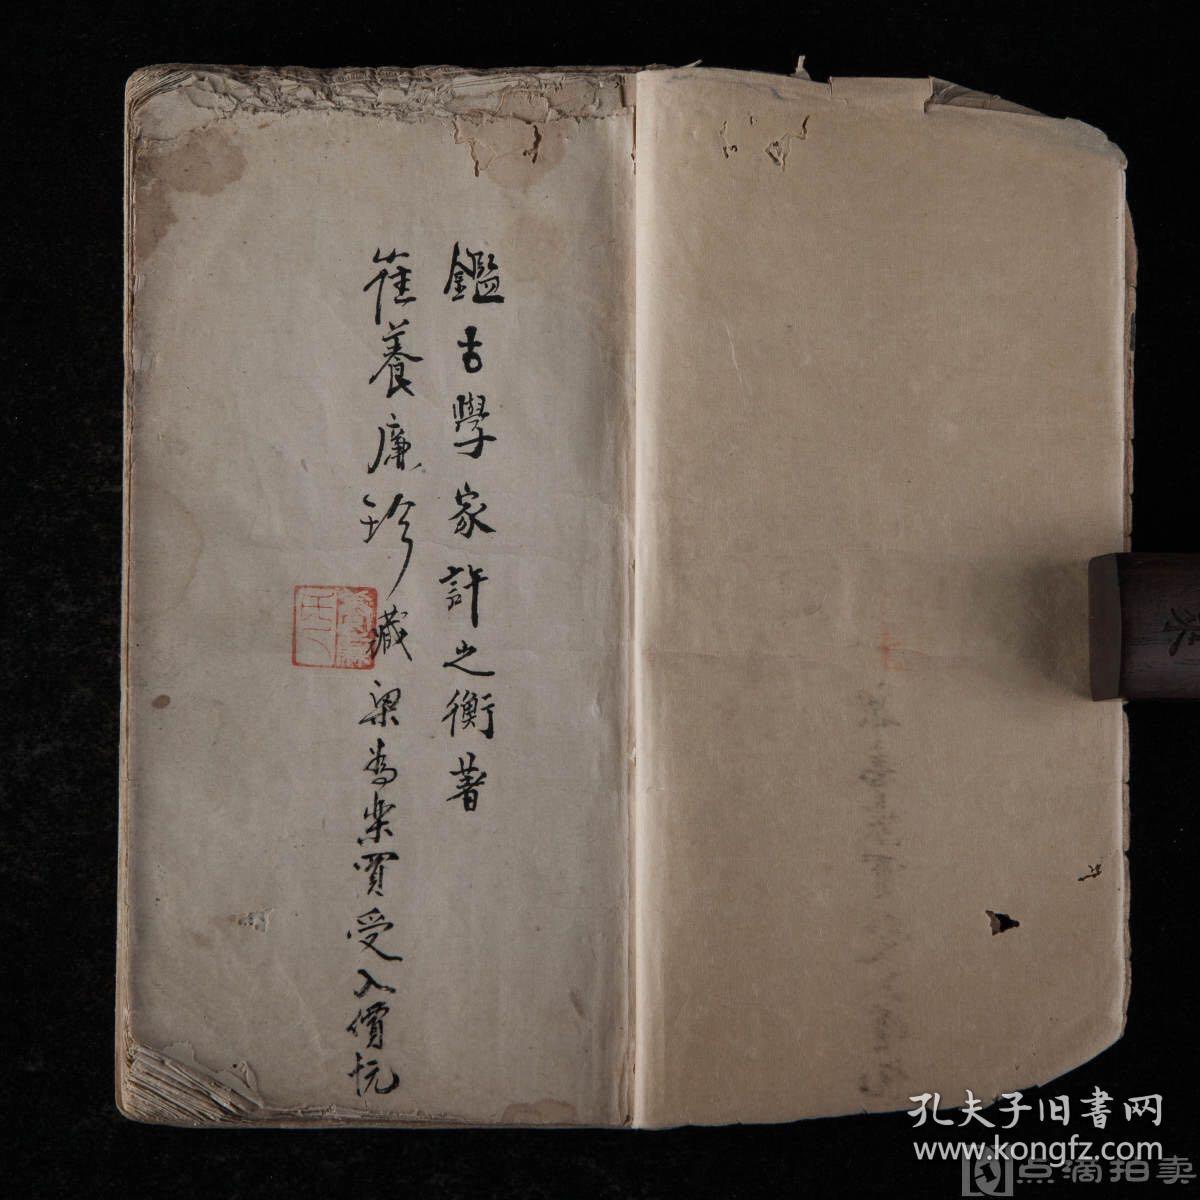 鑑古學家許之衡著
崔養廉珍藏梁為樂買受入價
孔夫子旧書网
www.kongfz.com
点滴拍卖